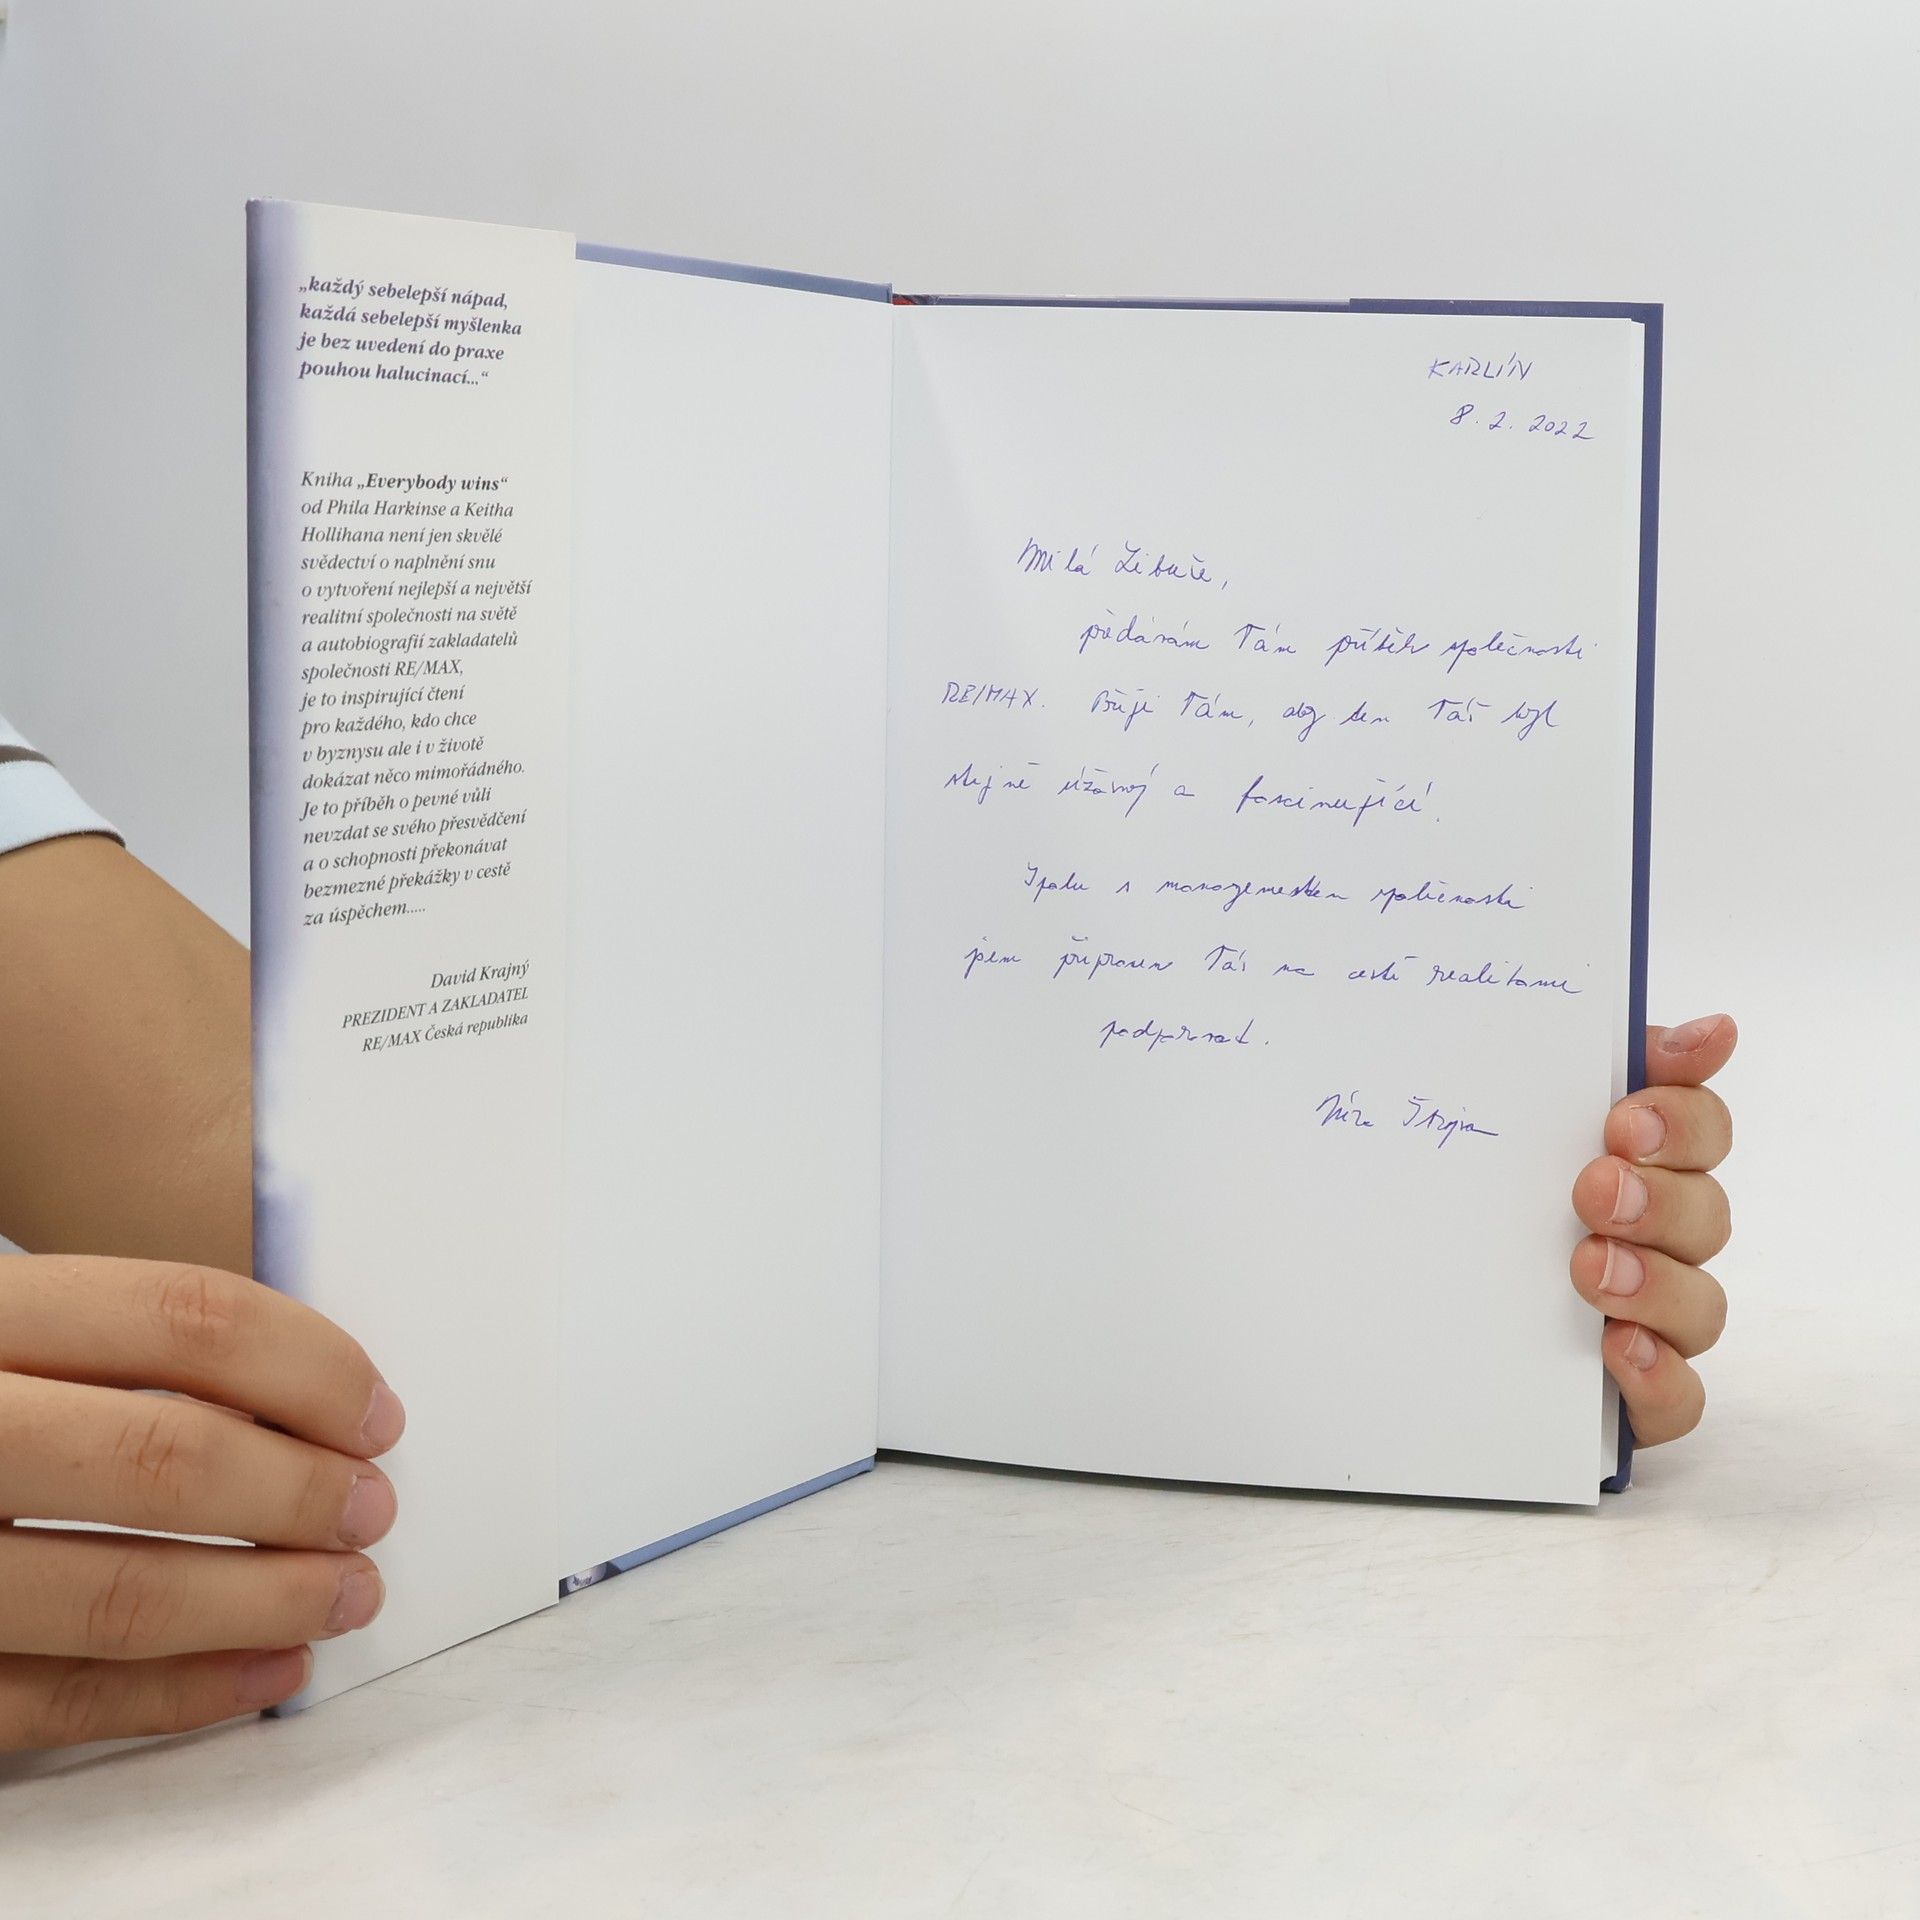 „každý sebelepší nápad,
každá sebelepší myšlenka
je bez uvedení do praxe
pouhou halucinací...“
Kniha „Everybody wins“
od Phila Harkinse a Keitha
Hollihana není jen skvělé
svědectví o naplnění snu
o vytvoření nejlepší a největší
realitní společnosti na světě
a autobiografií zakladatelů
společnosti RE/MAX,
je to inspirující čtení
pro každého, kdo chce
v byznysu ale i v životě
dokázat něco mimořádného.
Je to příběh o pevné vůli
nevzdat se svého přesvědčení
a o schopnosti překonávat
bezmezné překážky v cestě
za úspěchem.....
David Krajný
PREZIDENT A ZAKLADATEL
RE/MAX Česká republika
KARLÍN
8. 2. 2022
Milá Libuše,
předávám Vám příběh společnosti
RE/MAX. Přeji Vám, aby ten Váš byl
stejně úžasný a fascinující.
Spolu s managementem společnosti
jsem připraven Vás na cestě realitami
podporovat.